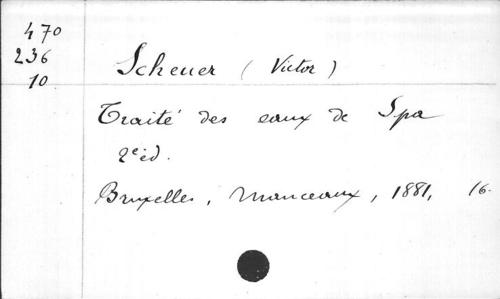 470
236
10
Scheuer (Victor)
Traité des eaux de Spa
2e éd.
Bruxelles, Manceaux, 1881, 16-